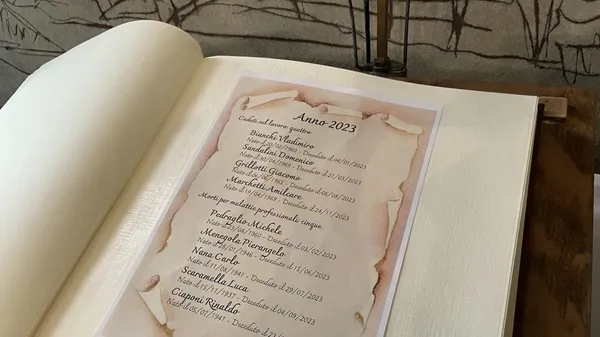 Anno 2023
Caduti sul lavoro: quattro
Bianchi Vladimiro
Nato il 20/02/1960 - Deceduto il 04/01/2023
Sandalini Domenico
Nato il 30/04/1969 - Deceduto il 21/03/2023
Grillotti Giacomo
Nato il 06/06/1965 - Deceduto il 06/06/2023
Marchetti Amilcare
Nato il 19/04/1963 - Deceduto il 24/11/2023
Morti per malattie professionali: cinque
Pedraglio Michele
Nato il 23/08/1960 - Deceduto il 03/02/2023
Menegola Pierangelo
Nato il 28/01/1946 - Deceduto il 15/06/2023
Nana Carlo
Nato il 11/08/1941 - Deceduto il 29/07/2023
Scaramella Luca
Nato il 15/11/1937 - Deceduto il 04/09/2023
Ciaponi Rinaldo
Nato il 05/07/1941 - Deceduto il